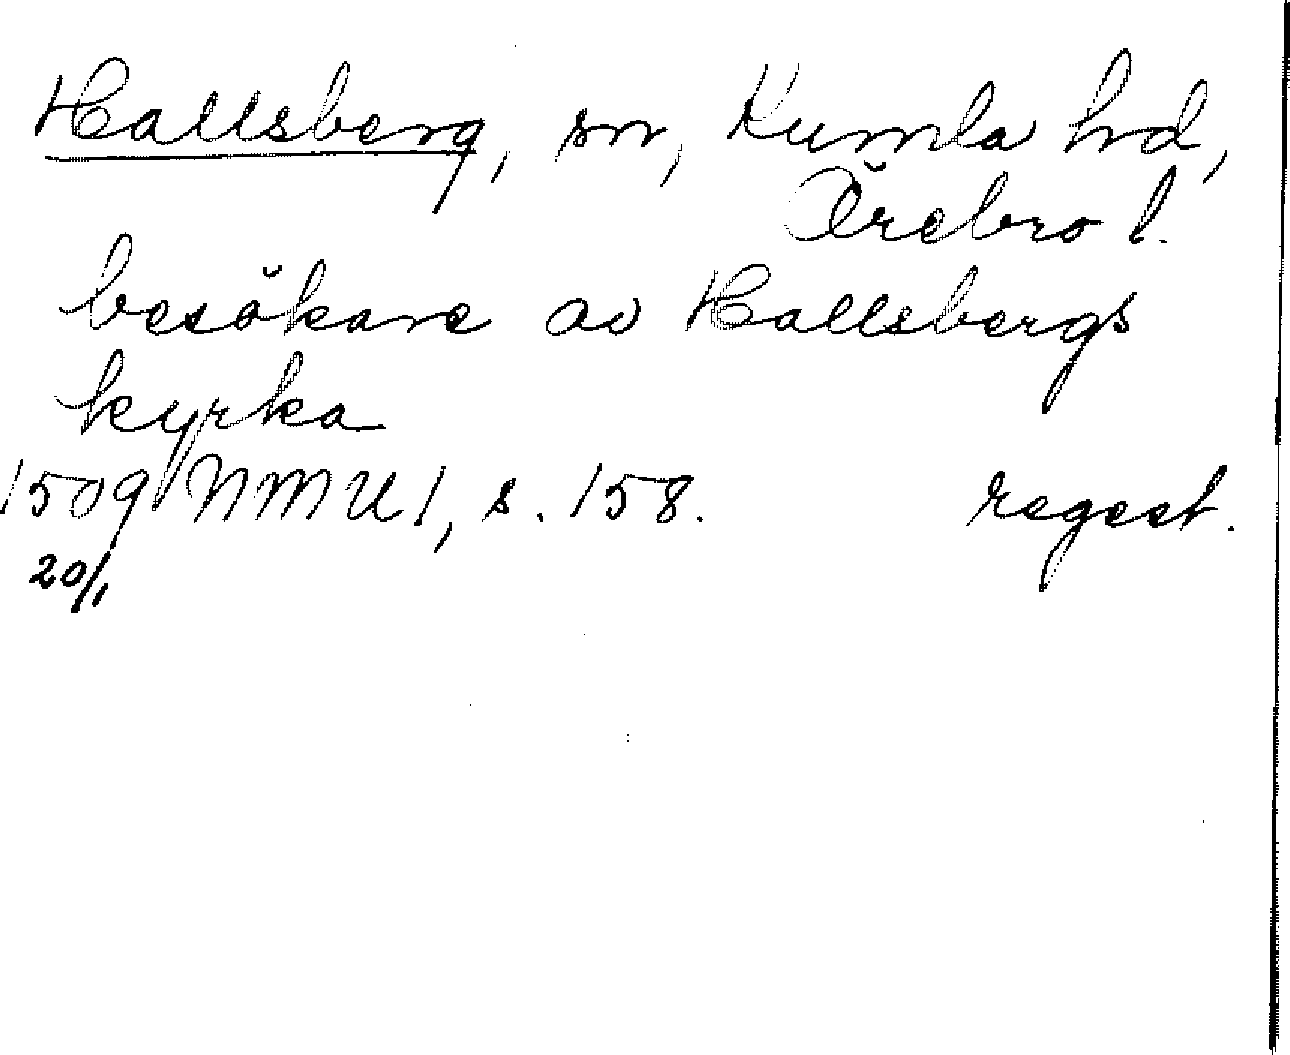 Hallsberg, sn, Kumla hd,
Örebro l.
besökare av Hallsbergs
kyrka
1509 NMU 1, s. 158. regest.
20/1